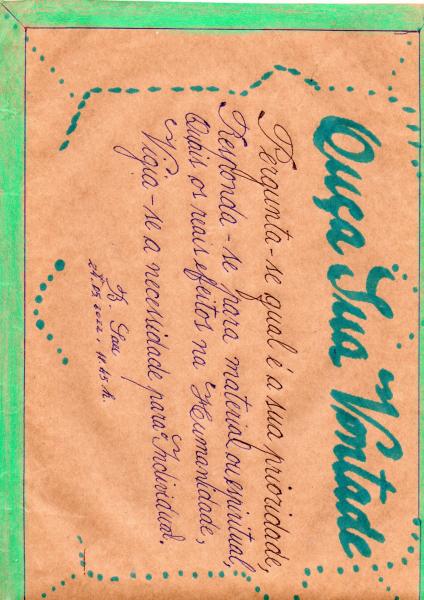 Ouça Sua Vontade
Pergunta-se qual é a sua prioridade,
Responda-se para material ou espiritual,
Quais os reais efeitos na "Humanidade,
Vigia-se a necessidade para "Individual.